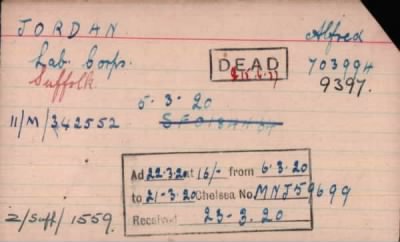 JORDAN Alfred
Lab. Corps. DEAD 703994
Suffolk 9397.
5.3.20
11/M/342552
Ad 22.3.20 at 16/- from 6.3.20
to 21-3.20 Chelsea No MNJ59699
Received 23-3.20
2/Suff/1559.